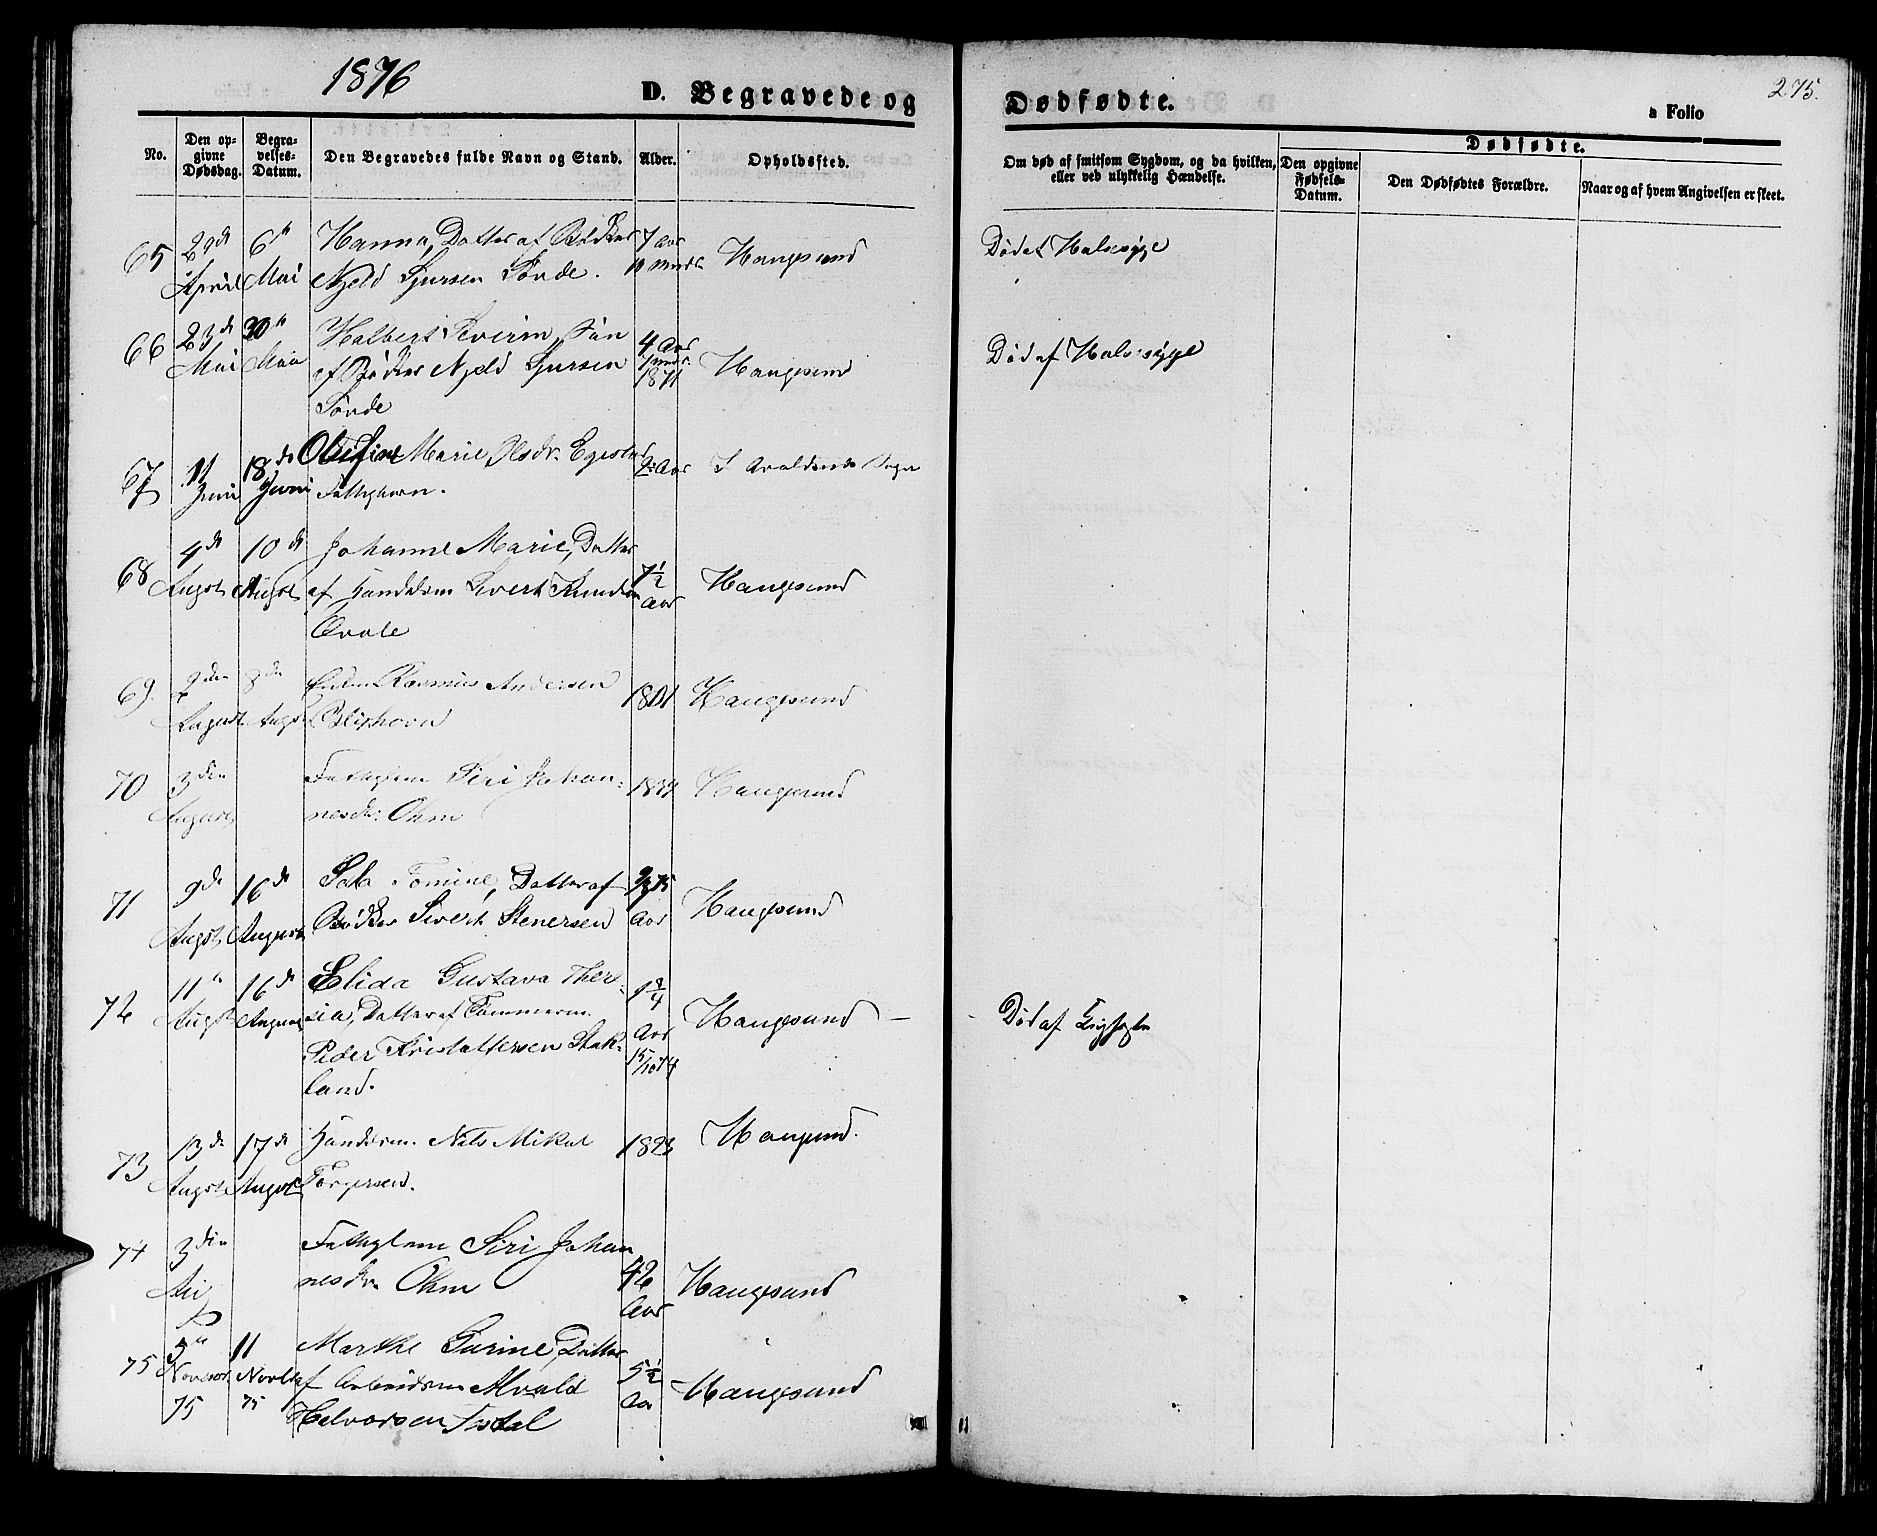 1876
D. Begravede og
Dødfødte.
275.
a Folio
No.
Den op-
givne
Dødsdag.
Begra-
velses-
Datum.
Den Begravedes fulde Navn og Stand.
Alder.
Opholdssted.
Om død af smitsom Sygdom, og da hvilken,
eller ved ulykkelig Hændelse.
Dødfødte.
Den opgivne
Fødsels-
Datum.
Den Dødfødtes Forældre.
Naar og af hvem Angivelsen er skeet.
65
29de
April
6te
Mai
Hanna, Datter af Bødker
Njeld Sjursen Sørde.
7 Aar
Haugesund
Død af Halssyge
66
23de
Mai
30te
Mai
Halbert Severin, Søn
af Bødker Njeld Sjursen
Sørde
4 Aar
1871
Haugesund
Død af Halssyge
67
11
Juni
18de
Juni
Marie Olsdr.
Aar
68
4de
Augst
10de
Augst
Johanne Marie, Datter
af Handelsm Sivert Knudsen
Qvale
7½
Aar
Haugesund
69.
2den
August
8de
Augst
Rasmus Andersen
1801
Haugesund
70
3die
August
Fattiglem Siri Johan-
nesdr: Ohm
Haugesund
71
9de
Augst
16de
August
Tomine, Datter af
Bødker Sivert Stenersen
Aar
Haugesund
72
11te
Augst
16de
August
Elida Gustava There-
sia, Datter af Tømmerm.
Peder Kristoffersen Stak-
land.
1¾
Aar
15/10 74
Haugesund –
Død af
73
13de
Augst
17de
Augst
Handelsm. Nels Mikal
Torgersen.
1823
Haugesund.
74
3die
Aug
Fattiglem Siri Johan
nesdr Ohm
42
Aar
Haugesund
75
5te
Novemb
75
11
Novbr
75
Marthe Gurine, Datter
af Arbeidsm
Halvorsen
5½
Aar
Haugesund